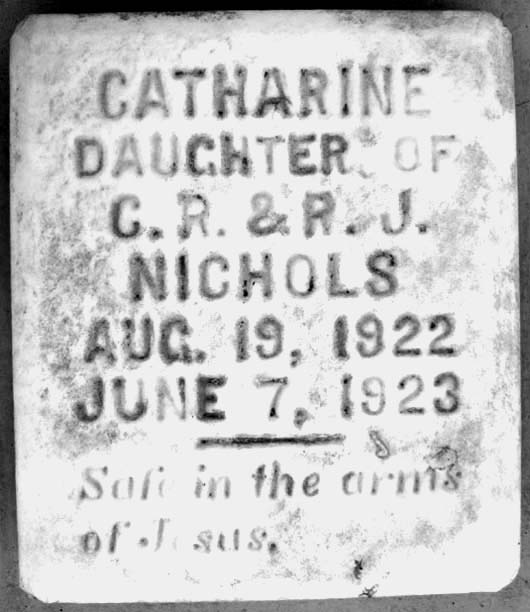 CATHARINE
DAUGHTER OF
C. R. & R. J.
NICHOLS
AUG. 19, 1922
JUNE 7, 1923
Safe in the arms
of Jesus.